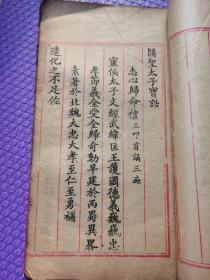 關聖太子寶誥
志心歸命禮三叩首誦三遍
靈侯太子文經武緯匡王護國德義巍巍忠
孝節義全受全歸奇勳早建於西蜀異畧
素著於北魏大忠大孝至仁至勇補
造化之不足佐